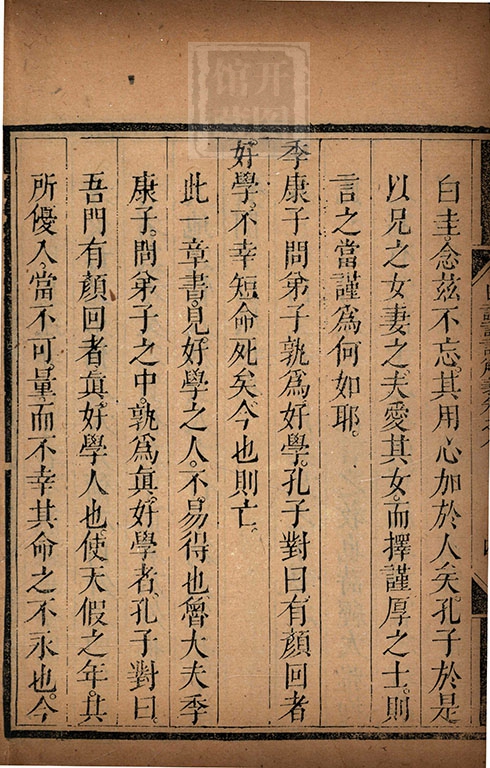 白圭。念茲不忘。其用心加於人矣。孔子於是
以兄之女妻之。夫愛其女。而擇謹厚之士。則
言之當謹為何如耶。
季康子問弟子孰為好學。孔子對曰。有顏回者
好學。不幸短命死矣。今也則亡。
此一章書。見好學之人。不易得也。魯大夫季
康子。問弟子之中。孰為眞好學者。孔子對曰。
吾門有顏回者。眞好學人也。使天假之年。其
所優入當不可量。而不幸其命之不永也。今
开图
馆藏